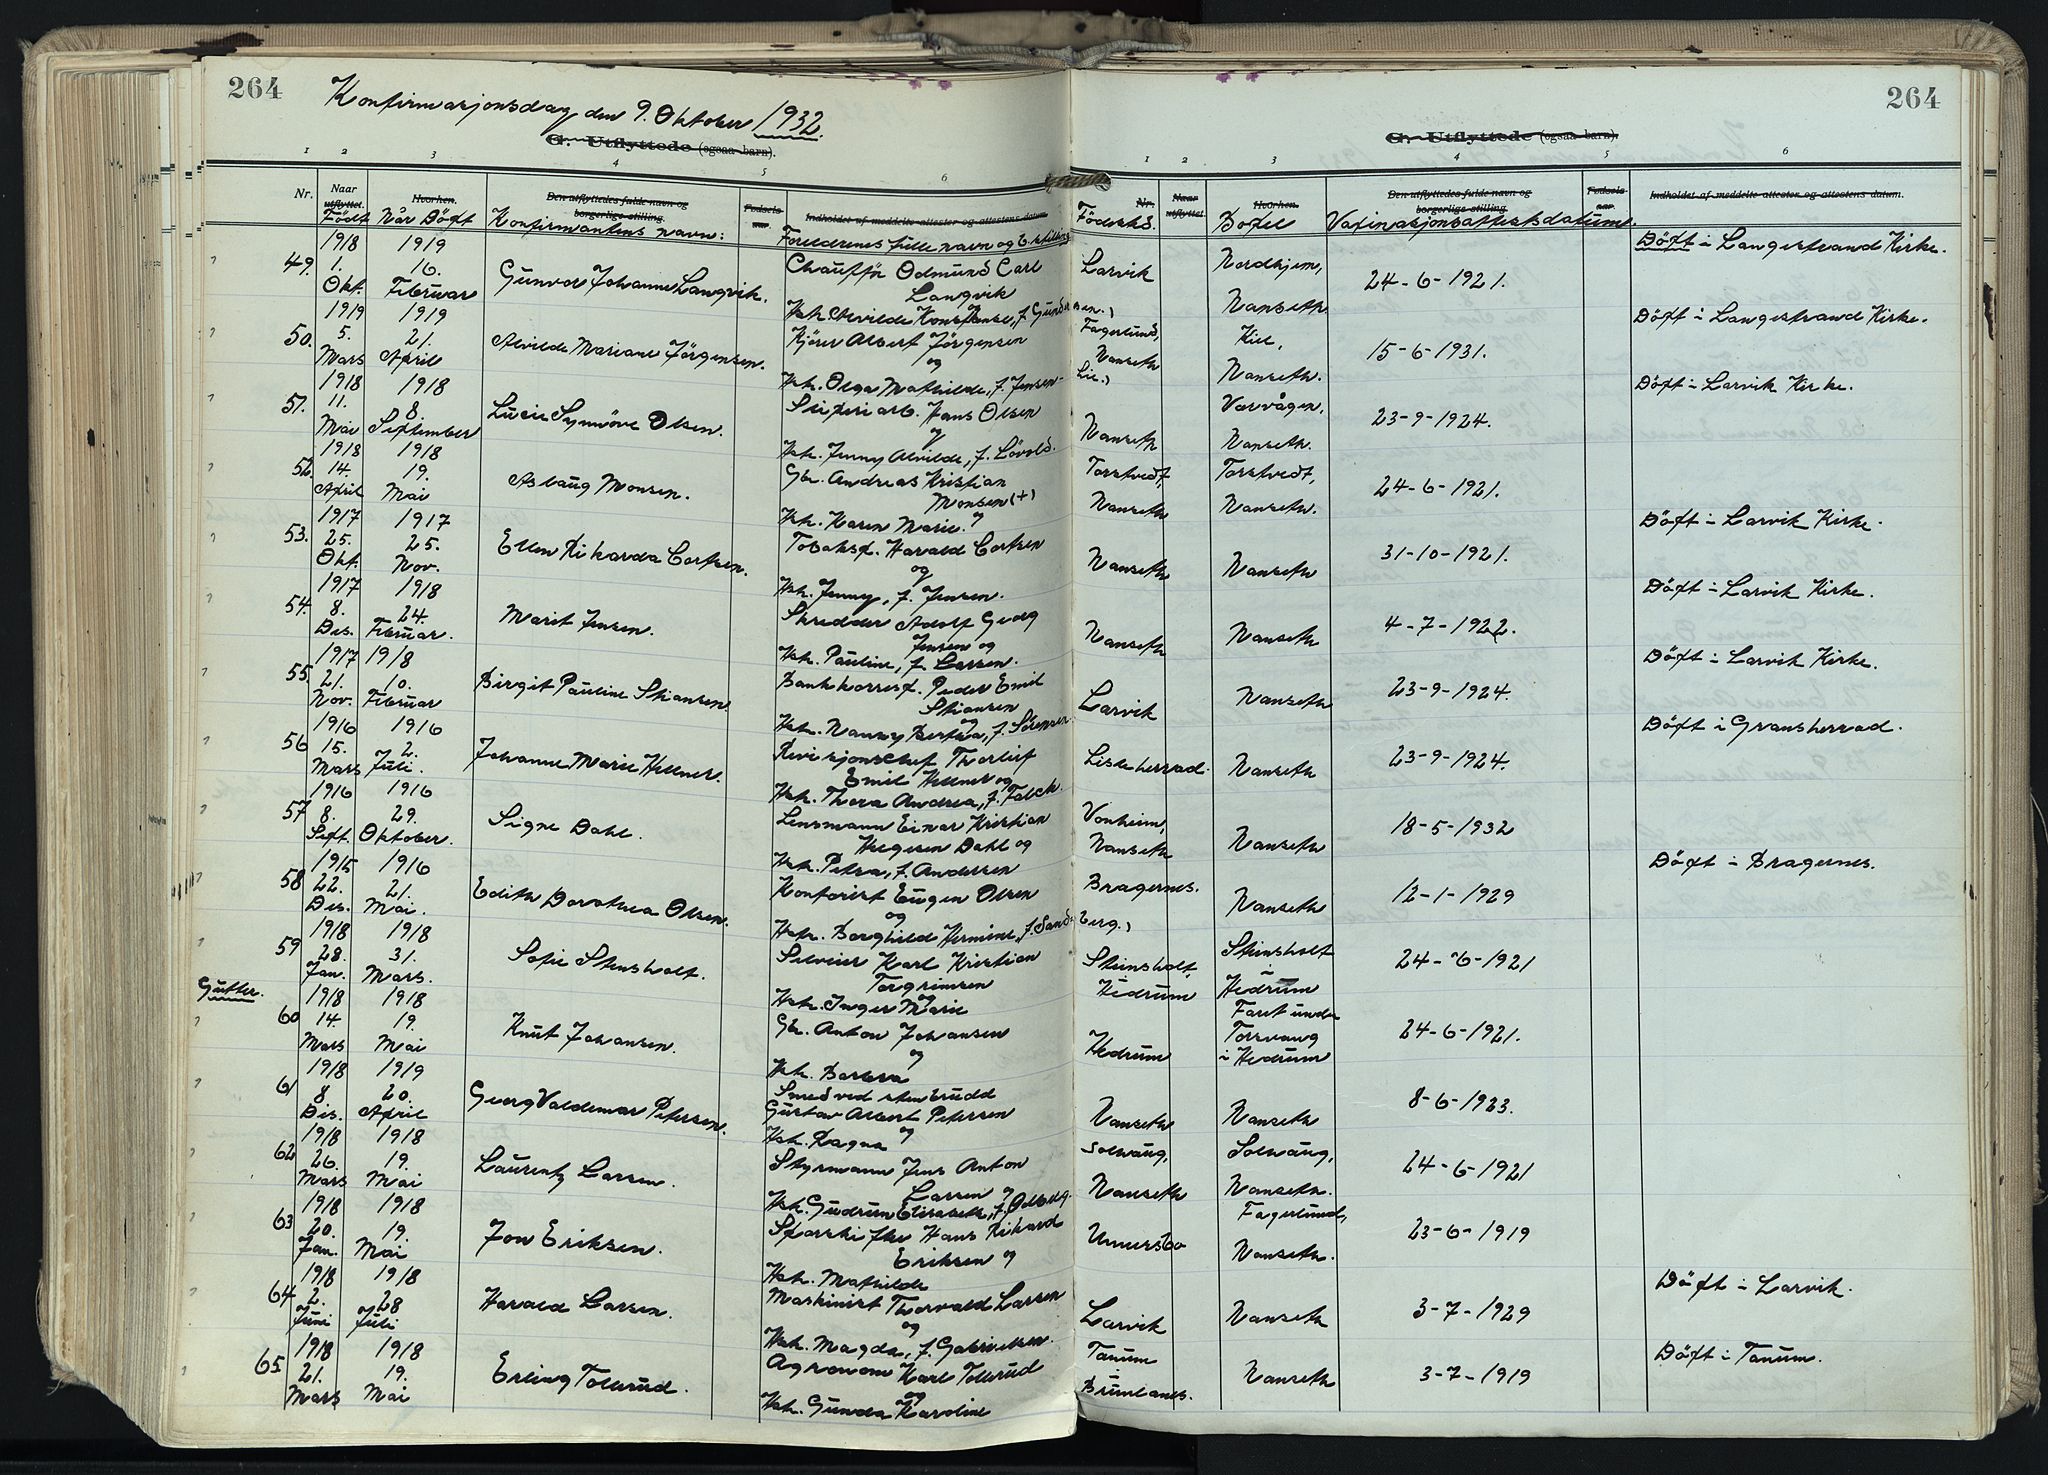 264
Konfirmasjonsdag den 9. Oktober 1932.
G. Utflyttede (ogsaa barn).
1 2 3 4 5 6
Nr. Naar utflyttet. Hvorhen. Den utflyttedes fulde navn og borgerlige stilling. Fødselsaar. Indholdet af meddelte attester og attestens datum.
Födt. Når Döpt Konfirmantens navn: Foreldrenes fulle navn og stilling
264
G. Utflyttede (ogsaa barn).
1 2 3 4 5 6
Nr. Naar utflyttet. Hvorhen. Den utflyttedes fulde navn og borgerlige stilling. Fødselsaar. Indholdet af meddelte attester og attestens datum.
Födested. Bopel Vaksinasjonsattestdatum.
49. 1918 1. Okt. 1919 16. Februar Gunvor Johanne Langvik. Chauffør Odmund Carl Langvik og Hstr. Alvilde Konstanse, f. Gundersen.) Larvik Nordhjem, Nanseth. 24-6-1921. Döpt i Langestrand Kirke.
50. 1919 5. Mars 1919 21. April Alvilde Mariane Jørgensen. Kjører Albert Jørgensen og Hstr. Olga Mathilde, f. Jensen-Lie.) Fagerlund, Nanseth Kiel, Nanseth. 15-6-1931. Döpt i Langestrand Kirke.
51. 1918 11. Mai 1918 8. September Lucie Synnöve Olsen. Sliperiarb. Hans Olsen og Hstr. Jenny Alvilde, f. Lövold. Nanseth Varvågen, Nanseth. 23-9-1924. Döpt i Larvik Kirke.
52. 1918 14. April 1918 19. Mai Aslaug Monsen. Gbr. Andreas Kristian Monsen (+) og Hstr. Karen Marie. Torstvedt, Nanseth Torstvedt, Nanseth. 24-6-1921.
53. 1917 25. Okt. 1917 25. Nov. Ellen Rikarda Cortsen. Tobaksf. Harald Cortsen og Hstr. Jenny, f. Jensen. Nanseth Nanseth 31-10-1921. Döpt i Larvik Kirke.
54. 1917 8. Des. 1918 24. Februar. Marit Jensen. Skredder Adolf Georg Jensen og Hstr. Pauline, f. Larsen. Nanseth Nanseth 4-7-1922. Döpt i Larvik Kirke.
55. 1917 21. Nov. 1918 10. Februar Birgit Pauline Stiansen. Bankkorresp. Peder Emil Stiansen og Hstr. Nanny Bertea, f. Sörensen. Larvik Nanseth 23-9-1924. Döpt i Larvik Kirke.
56 1916 15. Mars 1916 2. Juli. Johanne Marie Hellner. Revisjonschef Thorleif Emil Hellner og Hstr. Thora Andrea, f. Falck. Lisleherrad. Nanseth 23-9-1924. Döpt i Gransherrad.
57 1916 8. Sept. 1916 29. Oktober. Signe Dahl. Lensmann Einar Kristian Helgesen Dahl og Hstr. Petra, f. Andersen Vonheim, Nanseth Nanseth 18-5-1932
58 1915 22. Des. 1916 21. Mai. Edith Dorothea Olsen. Kontorist Eugen Olsen og Hstr. Borghild Hermine, f. Sandberg.) Bragernes. Nanseth 12-1-1929 Döpt i Bragernes.
59 1918 28. Jan. 1918 31. Mars. Sofie Stensholt. Selveier Karl Kristian Torgrimsen og Hstr. Inger Marie Steinsholt, Hedrum Steinsholt i Hedrum 24-6-1921
Gutter.
60 1918 14. Mars 1918 19. Mai Knut Johansen. Gbr. Anton Johansen og Hstr. Barbra Hedrum Faret under Torsvang i Hedrum 24-6-1921.
61 1918 8 Des. 1919 20. April Georg Valdemar Petersen. Smed ved stenbrudd Gustav Albert Petersen og Hstr. Ragna Nanseth Nanseth 8-6-1923.
62 1918 26. Mars 1918 19. Mai Laurentz Larsen. Styrmann Jens Anton Larsen og Hstr. Gudrun Elisabeth, f. Odberg. Solvaug, Nanseth Solvaug, Nanseth. 24-6-1921
63 1918 20. Jan. 1918 19. Mai Jon Eriksen. Sporskifter Hans Rikard Eriksen og Hstr. Mathilde Unnersbo Fagerlund, Nanseth. 23-6-1919
64 1918 2. Juni 1918 28 Juli Harald Larsen. Maskinist Thorvald Larsen og Hstr. Magda, f. Gabrielsen. Larvik Nanseth 3-7-1929 Döpt i Larvik.
65 1918 21. Mars 1918 19. Mai Erling Tollerud. Agronom Karl Tollerud og Hstr. Gunda Karoline Tanum i Brunlanes. Nanseth 3-7-1919 Döpt i Tanum.